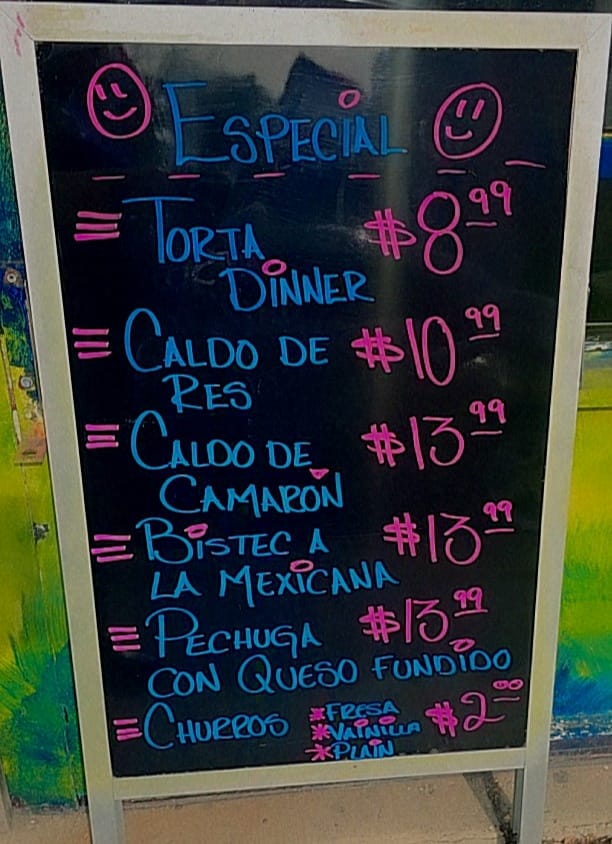 ESPECIAL
TORTA $8.99
DINNER
CALDO DE $10.99
RES
CALDO DE $13.99
CAMARÓN
BISTEC A $13.99
LA MEXICANA
PECHUGA $13.99
CON QUESO FUNDIDO
CHURROS *FRESA $2.00
*VAINILLA
*PLAIN